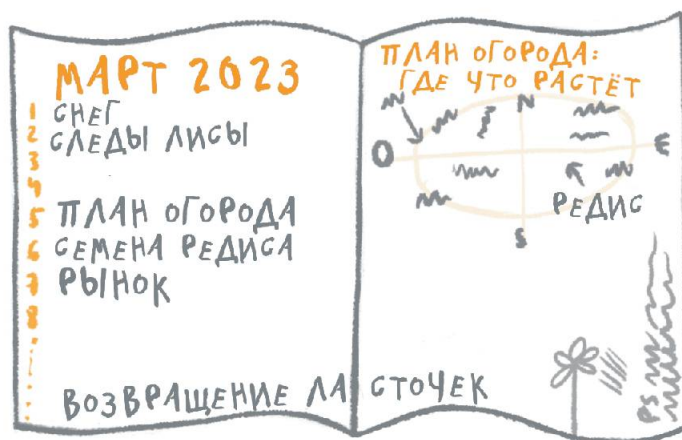 МАРТ 2023
1 СНЕГ
2 СЛЕДЫ ЛИСЫ
3
4
5 ПЛАН ОГОРОДА
6 СЕМЕНА РЕДИСА
7 РЫНОК
8
ВОЗВРАЩЕНИЕ ЛАСТОЧЕК
ПЛАН ОГОРОДА:
ГДЕ ЧТО РАСТЁТ
N
O E
РЕДИС
S
PS